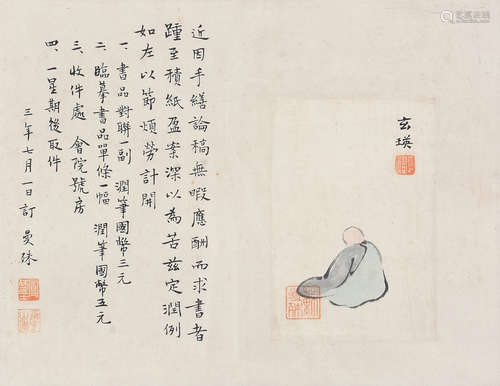 近因手繕論稿無暇應酬而求書者
踵至積紙盈案深以為苦茲定潤例
如左以節煩勞計開
一 書品對聯一副 潤筆國幣三元
二 臨摹書品單條一幅 潤筆國幣五元
三 收件處 會院號房
四 一星期後取件
三年七月一日訂 曼殊
玄瑛